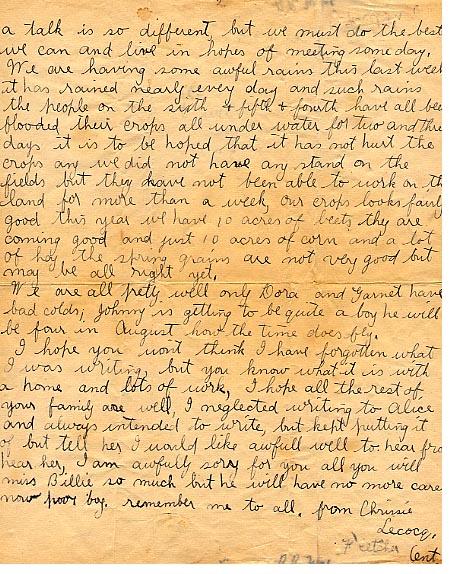 a talk is so different, but we must do the best
we can and live in hopes of meeting some day.
We are having some awful rains this last week
it has rained nearly every day and such rains
the people on the sixth + fifth + fourth have all bee
flooded their crops all under water for two and three
days it is to be hoped, that it has not hurt the
crops any we did not have any stand on the
fields but they have not been able to work on th
land for more than a week, our crops looks fairly
good this year we have 10 acres of beets they are
coming good and just 10 acres of corn and a lot
of hay, the spring grains are not very good but
may be all right yet.
We are all pretty well only Dora and Garnet have
bad colds, Johnny is getting to be quite a boy he will
be four in August how the time does fly.
I hope you wont think I have forgotten what
I was writing, but you know what it is with
a home and lots of work, I hope all the rest of
your family are well, I neglected writing to Alice
and always intended to write, but kept putting it
of but tell her I would like awfull well to hear fro
hear her, I am awfully sorry for you all you will
miss Billie so much but he will have no more care
now poor boy. remember me to all. from Chrissie
Lecocq.
Fletcher
Ont